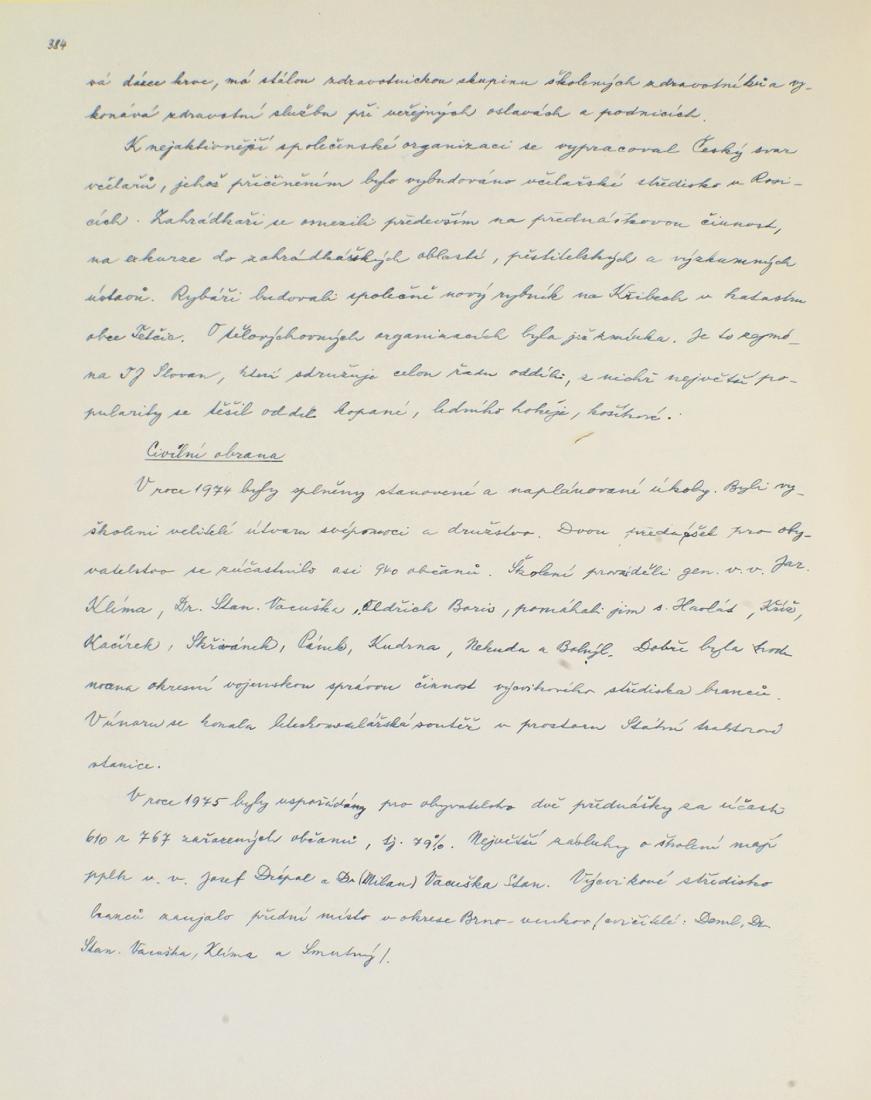 384
vá dárce krve, má stálou zdravotnickou skupinu školených zdravotníků a vy-
konává zdravotní službu při veřejných oslavách a podnicích.
K nejaktivnější společenské organizaci se vypracoval Český svaz
včelařů, jehož přičiněním bylo vybudováno včelařské středisko v Rosi-
cích. Zahrádkáři se omezili především na přednáškovou činnost,
na exkurze do zahrádkářských oblastí, pěstitelských a výzkumných
ústavů. Rybáři budovali společně nový rybník na Křibech v katastru
obce Tetčic. O tělovýchovných organizacích byla již zmínka. Je to zejmé-
na TJ Slovan, která sdružuje celou řadu oddílů, z nichž největší po-
pularity se těšil oddíl kopané, ledního hokeje, košíkové.
Civilní obrana
V roce 1974 byly splněny stanovené a naplánované úkoly. Byli vy-
školeni velitelé útvaru svépomoci a družstva. Dvou přednášek pro oby-
vatelstvo se zúčastnilo asi 940 občanů. Školení prováděli gen. v. v. Jar.
Klíma, Dr. Stan. Vacuška, Oldřich Boris, pomáhali jim s. Havlát, Kříž,
Kačírek, Skřivánek, Pánek, Kudrna, Nekuda a . Dobře byla hod-
nocena okresní vojenskou správou činnost výcvikového střediska branců.
V únoru se konala leteckomodelářská soutěž v prostoru Státní traktorové
stanice.
V roce 1975 byly uspořádány pro obyvatelstvo dvě přednášky za účasti
610 z 767 zařazených občanů, tj. 79%. Největší zásluhy o školení mají
pplk v. v. Josef Drápal a Dr (Milan) Vacuška Stan. Výcvikové středisko
branců zaujalo přední místo v okrese Brno-venkov /cvičitelé: Deml, Dr.
Stan. Vacuška, Klíma a Smutný/.